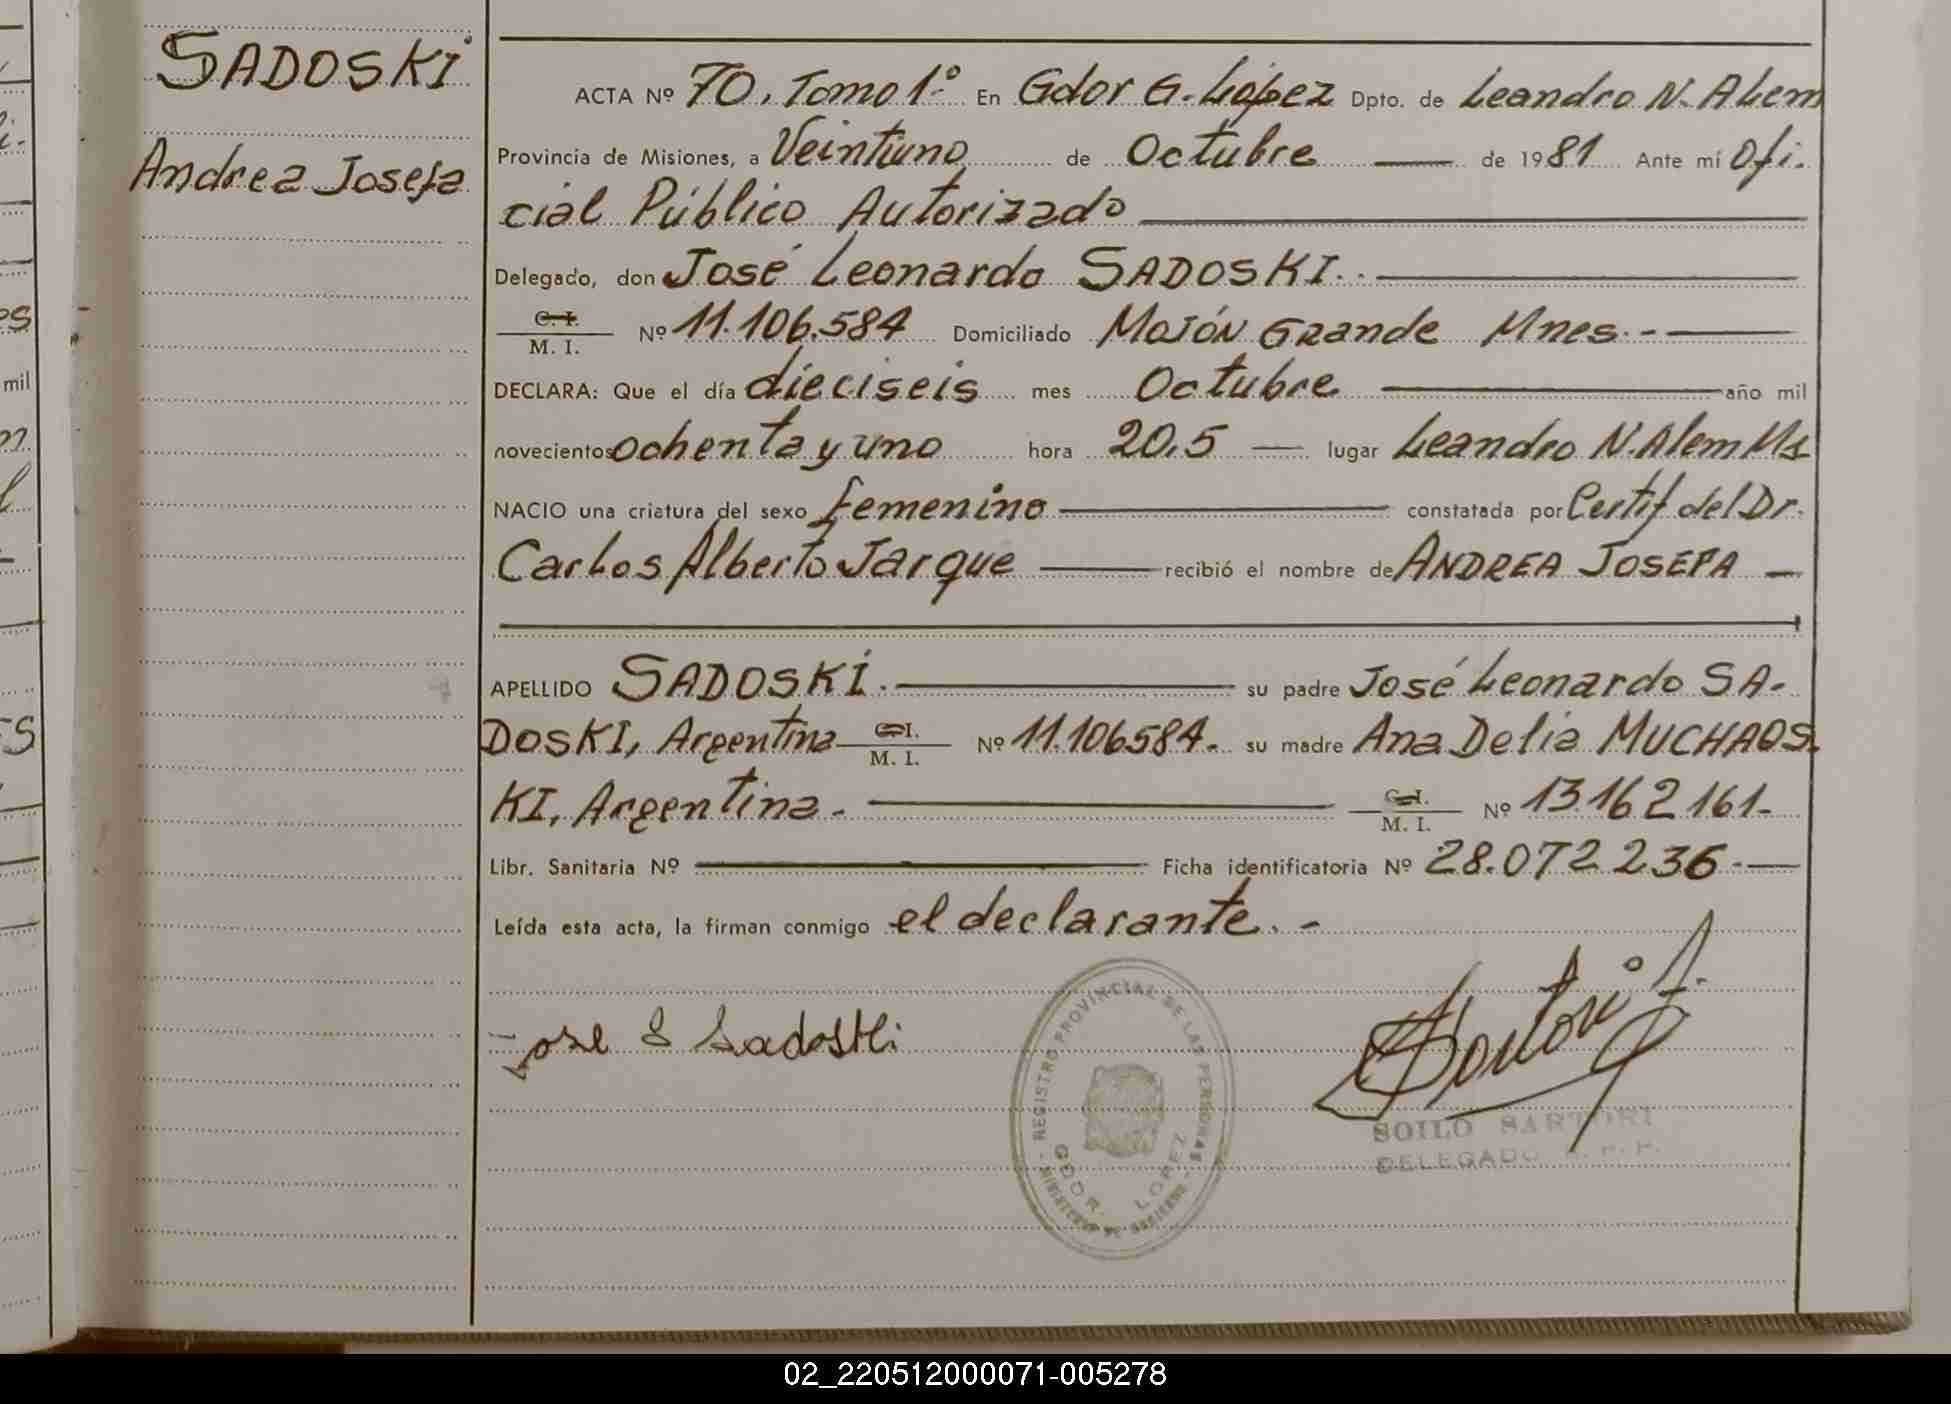 SADOSKI
Andrea Josefa
ACTA Nº 70. Tomo 1º En Gdor G. López Dpto. de Leandro N. Alem
Provincia de Misiones, a Veintiuno de Octubre de 1981 Ante mí Ofi-
cial Público Autorizado
Delegado, don José Leonardo SADOSKI.
C. I.
M. I. Nº 11.106.584 Domiciliado Mojón Grande Mnes.-
DECLARA: Que el día dieciseis mes Octubre año mil
novecientos ochenta y uno hora 20,5 lugar Leandro N. Alem Ms
NACIO una criatura del sexo femenino constatada por Certif del Dr.
Carlos Alberto Jarque recibió el nombre de ANDREA JOSEFA
APELLIDO SADOSKI. su padre José Leonardo SA-
DOSKI, Argentina C. I. M. I. Nº 11.106584. su madre Ana Delia MUCHAOS-
KI, Argentina.- C. I. M. I. Nº 13.162 161-
Libr. Sanitaria Nº Ficha identificatoria Nº 28.072 236.-
Leída esta acta, la firman conmigo el declarante.-
Jose L Sadoski
REGISTRO PROVINCIAL DE LAS PERSONAS
GDOR. LOPEZ
MINISTERIO DE GOBIERNO
SOILO SARTORI
DELEGADO R. P. P.
mil
02_220512000071-005278